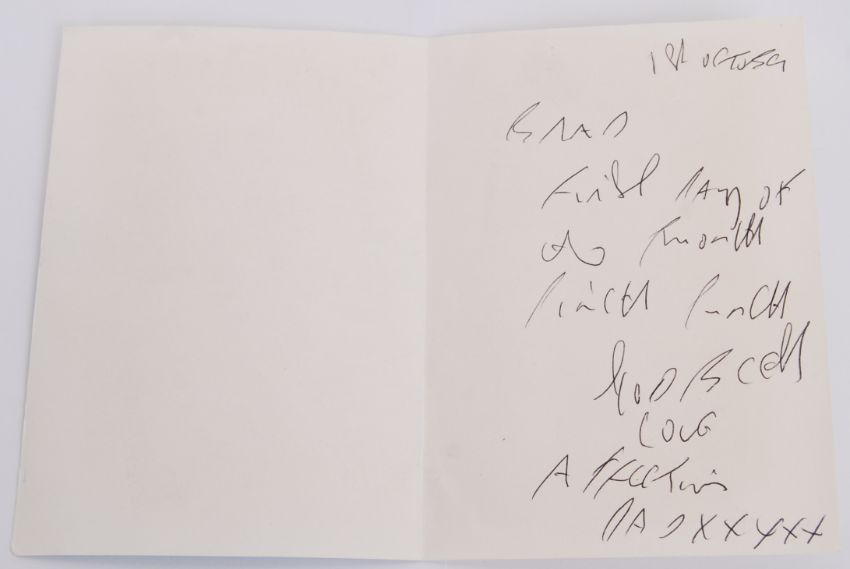 1st OCTOBER
BRAD
First DAY OF
the month
Pinch Punch
GOD BLESS
LOVE
AFFECTION
DAD XXXXX